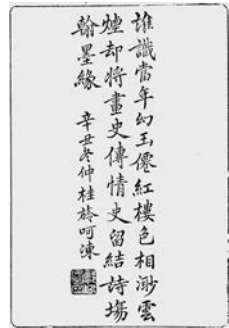 誰識當年幻玉僊紅樓色相渺雲
煙却將畫史傳情史留結詩場
翰墨緣
辛丑冬仲桂舲呵凍